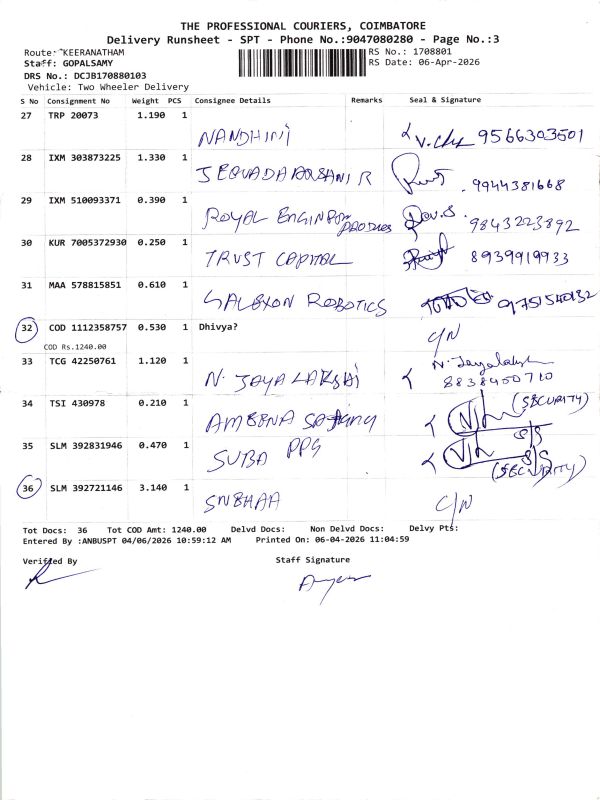 THE PROFESSIONAL COURIERS, COIMBATORE
Delivery Runsheet - SPT - Phone No.:9047080280 - Page No.:3
Route: KEERANATHAM
RS No.: 1708801
Staff: GOPALSAMY
RS Date: 06-Apr-2026
DRS No.: DCJB170880103
Vehicle: Two Wheeler Delivery
S No Consignment No Weight PCS Consignee Details Remarks Seal & Signature
27 TRP 20073 1.190 1
NANDHINI 9566303501
28 IXM 303873225 1.330 1
R 9944381668
29 IXM 510093371 0.390 1
ROYAL 9843223892
30 KUR 7005372930 0.250 1
TRUST CAPITAL 8939919933
31 MAA 578815851 0.610 1
ROBOTICS 9751540132
32 COD 1112358757 0.530 1 Dhivya?
C/N
COD Rs.1240.00
33 TCG 42250761 1.120 1
N. Jayalakshmi
8838400710
34 TSI 430978 0.210 1
(SECURITY)
35 SLM 392831946 0.470 1
SUBA PPG
(SECURITY)
36 SLM 392721146 3.140 1
SNBHAA C/N
Tot Docs: 36 Tot COD Amt: 1240.00 Delvd Docs: Non Delvd Docs: Delvy Pts:
Entered By :ANBUSPT 04/06/2026 10:59:12 AM Printed On: 06-04-2026 11:04:59
Verified By Staff Signature